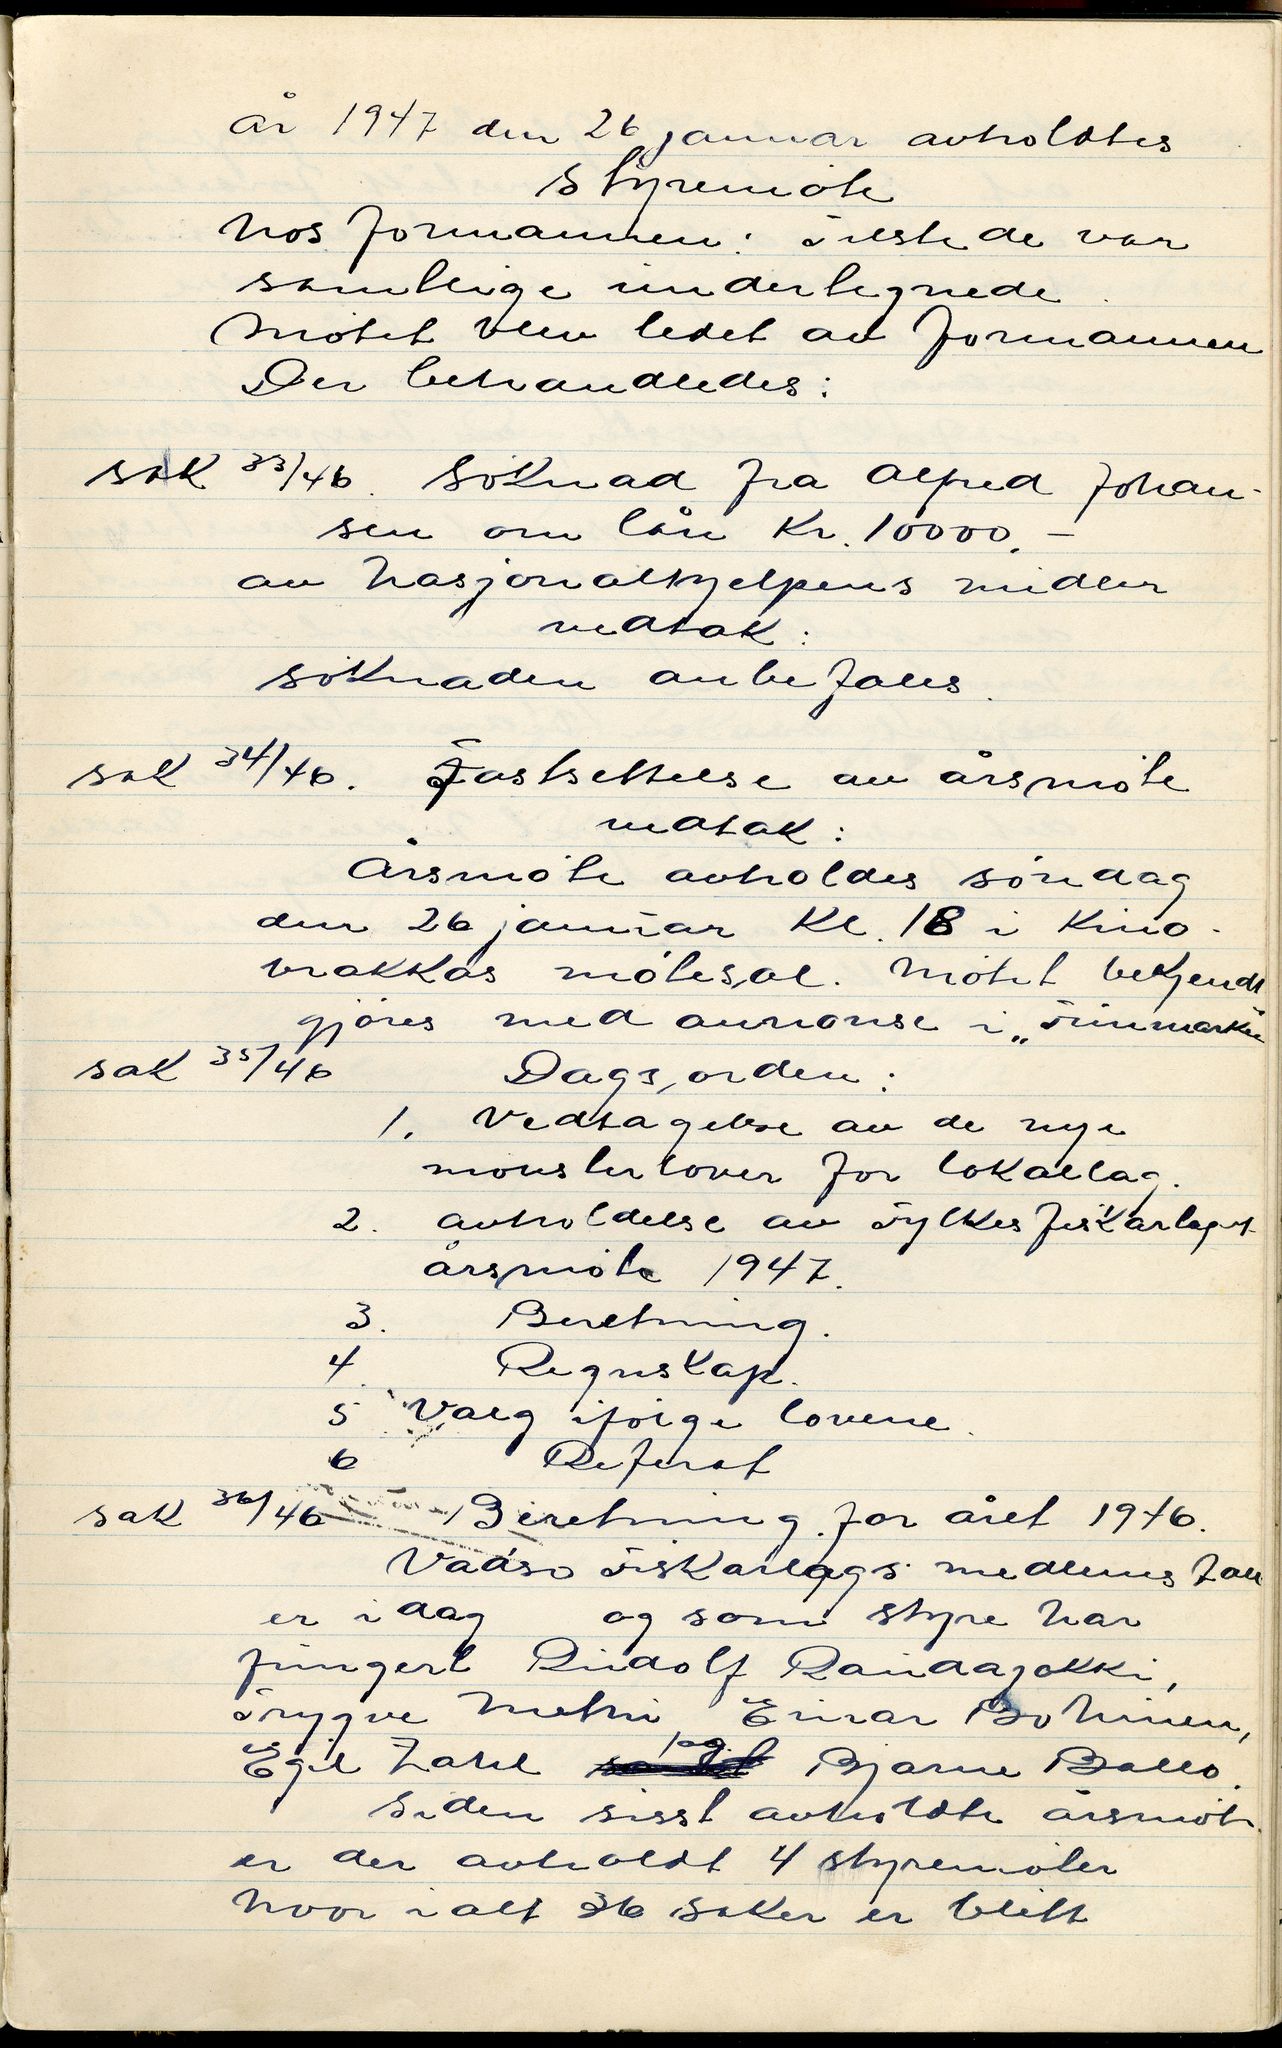 År 1947 den 26 januar avholdtes
styremöte
hos formannen. Tilstede var
samtlige undertegnede.
Mötet blev ledet av formannen
Der behandledes:
sak 33/46. Söknad fra Alfred Johan-
sen om lån Kr. 10000.-
av Nasjonalhjelpens midler
vedtak:
söknaden anbefales.
sak 34/46. Fastsettelse av årsmöte
vedtak:
Årsmöte avholdes söndag
den 26 januar Kl. 18 i Kino-
brakkas mötesal. Mötet bekjendt
gjöres med annonse i „Finmarken
sak 35/46 Dagsorden:
1. Vedtagelse av de nye
mönsterlover for lokallag.
2. avholdelse av Fylkesfiskarlagets
årsmöte 1947.
3. Beretning.
4 Regnskap.
5 Valg ifölge lovene.
6 Referat
sak 36/46 Beretning for året 1946.
Vadsö Fiskarlags medlemstall
er idag og som styre har
fungert Rudolf Raudajokki,
Trygve Methi Einar Bohinen,
Egil Zahl og Bjarne Ballo.
Siden sisst avholdte årsmöte
er der avholdt 4 styremöter
hvor ialt 36 saker er blitt